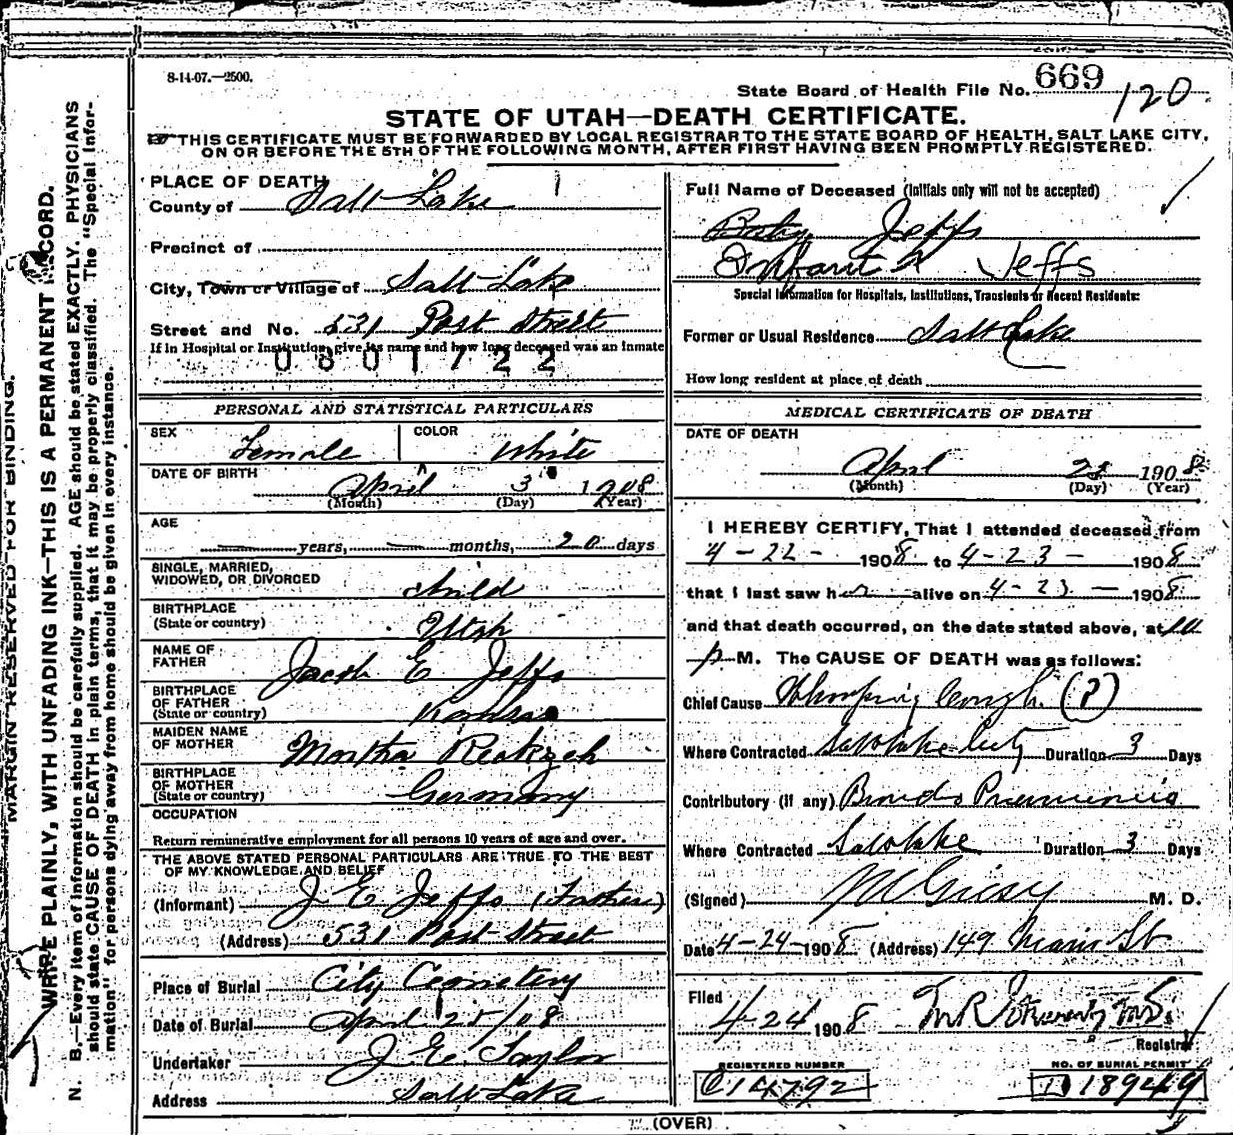 8-14-07.—2500.
State Board of Health File No. 669
120
STATE OF UTAH—DEATH CERTIFICATE.
THIS CERTIFICATE MUST BE FORWARDED BY LOCAL REGISTRAR TO THE STATE BOARD OF HEALTH, SALT LAKE CITY,
ON OR BEFORE THE 5TH OF THE FOLLOWING MONTH, AFTER FIRST HAVING BEEN PROMPTLY REGISTERED.
PLACE OF DEATH
County of Salt Lake
Precinct of
City, Town or Village of Salt Lake
Street and No. 531 Post Street
If in Hospital or Institution, give its name and how long deceased was an inmate
0801722
Full Name of Deceased (Initials only will not be accepted)
Baby Jeffs
Infant Jeffs
Special Information for Hospitals, Institutions, Transients or Recent Residents:
Former or Usual Residence Salt Lake
How long resident at place of death
PERSONAL AND STATISTICAL PARTICULARS
SEX Female COLOR White
DATE OF BIRTH
April 3 1908
(Month) (Day) (Year)
AGE
years, months, 20 days
SINGLE, MARRIED,
WIDOWED, OR DIVORCED child
BIRTHPLACE
(State or country) Utah
NAME OF
FATHER Jacob E Jeffs
BIRTHPLACE
OF FATHER
(State or country) Kansas
MAIDEN NAME
OF MOTHER Martha
BIRTHPLACE
OF MOTHER
(State or country) Germany
OCCUPATION
Return remunerative employment for all persons 10 years of age and over.
THE ABOVE STATED PERSONAL PARTICULARS ARE TRUE TO THE BEST
OF MY KNOWLEDGE AND BELIEF
(Informant) J E Jeffs (Father)
(Address) 531 Post Street
Place of Burial City Cemetery
Date of Burial April 25/08
Undertaker J E Taylor
Address Salt Lake
MEDICAL CERTIFICATE OF DEATH
DATE OF DEATH
April 23 1908
(Month) (Day) (Year)
I HEREBY CERTIFY, That I attended deceased from
4-22- 1908 to 4-23- 1908
that I last saw her alive on 4-23- 1908
and that death occurred, on the date stated above, at 10
p M. The CAUSE OF DEATH was as follows:
Chief Cause Whooping Cough (?)
Where Contracted Salt Lake City Duration 3 Days
Contributory (if any) Broncho Pneumonia
Where Contracted Salt Lake Duration 3 Days
(Signed) M. D.
Date 4-24-1908 (Address) 149 Main St
Filed
4-24 1908
Registrar
REGISTERED NUMBER
C14792
NO. OF BURIAL PERMIT
D18949
(OVER)
MARGIN RESERVED FOR BINDING.
WRITE PLAINLY, WITH UNFADING INK—THIS IS A PERMANENT RECORD.
N. B.—Every item of information should be carefully supplied. AGE should be stated EXACTLY. PHYSICIANS
should state CAUSE OF DEATH in plain terms, that it may be properly classified. The "Special Infor-
mation" for persons dying away from home should be given in every instance.